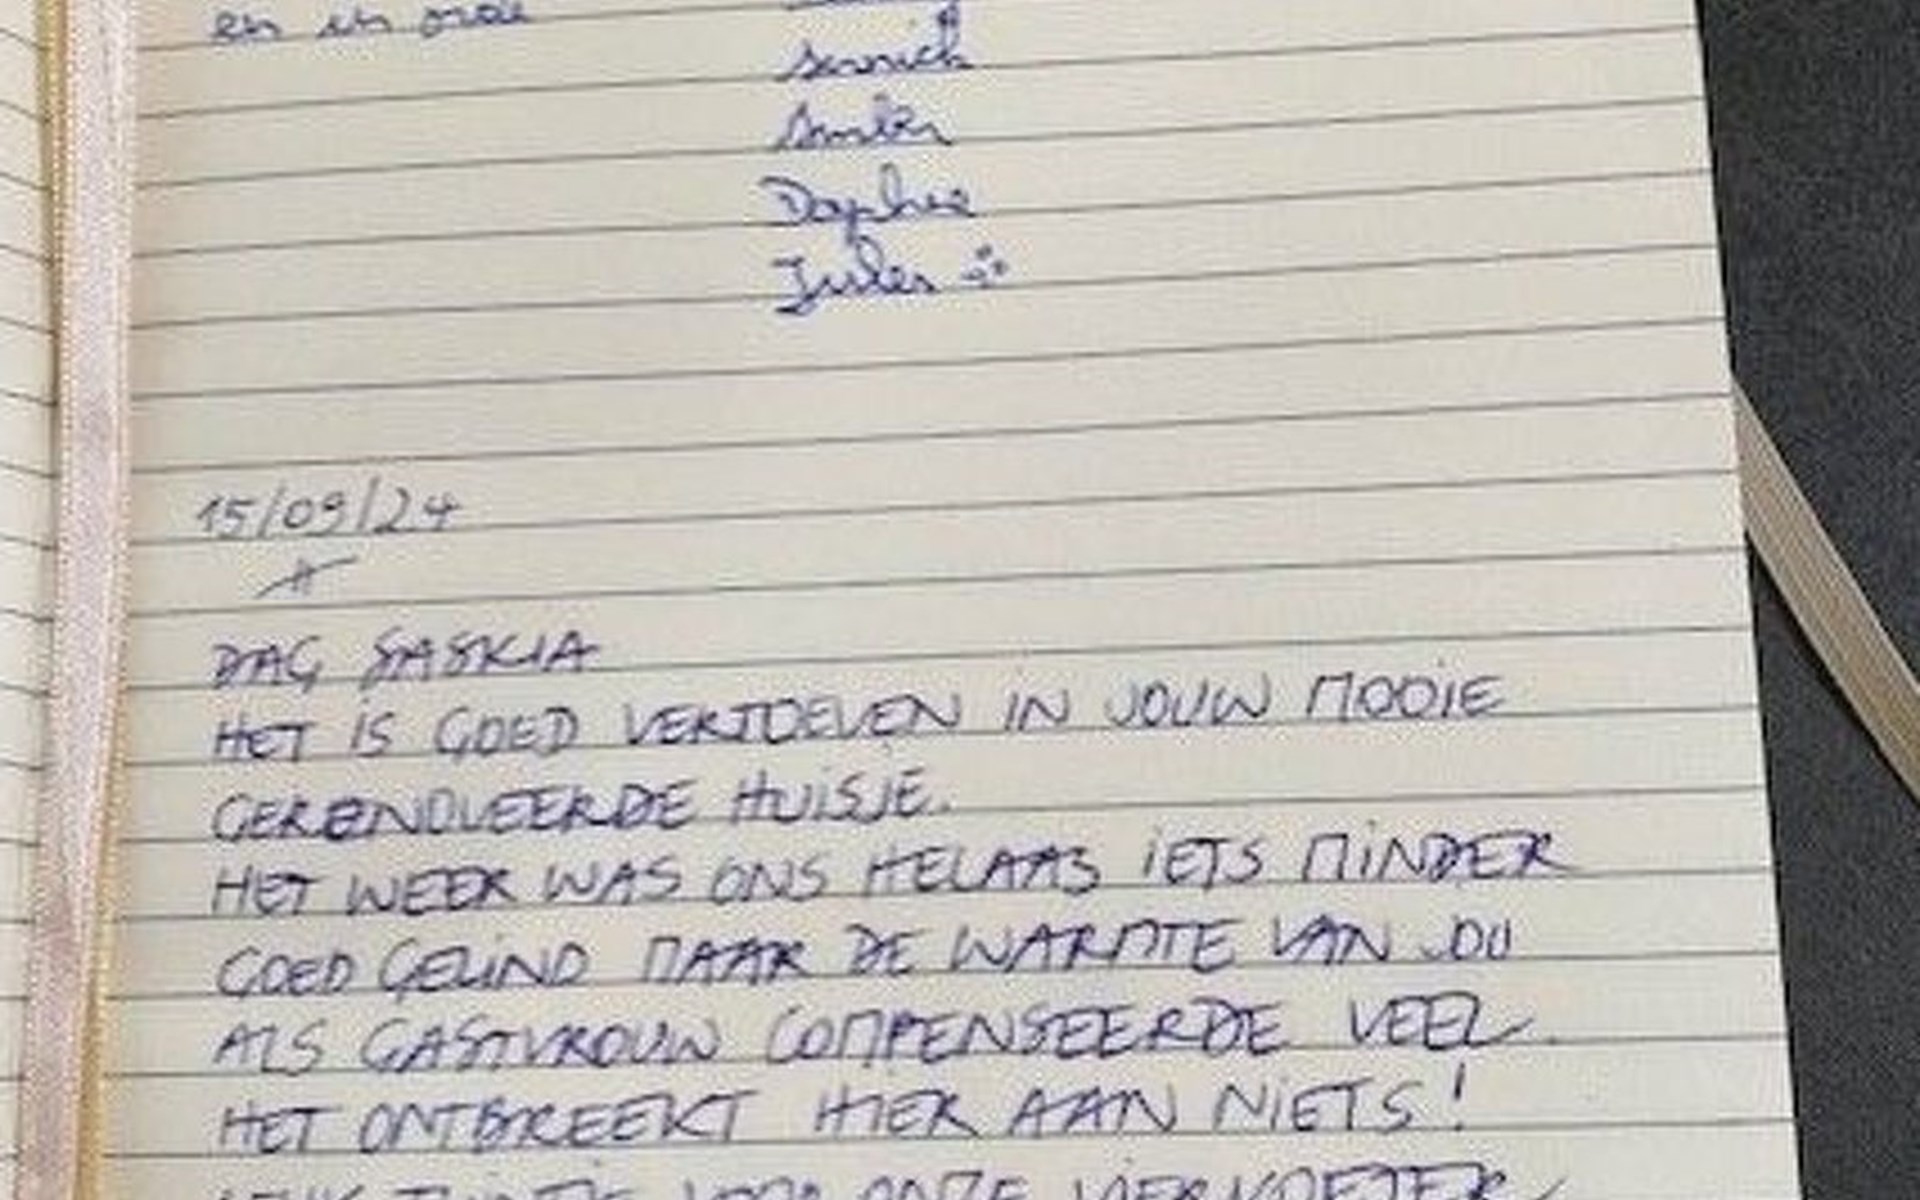 en in orde
Jannick
Amber
Daphne
Jules
15/09/24
DAG SASKIA
HET IS GOED VERTOEVEN IN JOUW MOOIE
GERENOVEERDE HUISJE.
HET WEER WAS ONS HELAAS IETS MINDER
GOED GEZIND MAAR DE WARMTE VAN JOU
ALS GASTVROUW COMPENSEERDE VEEL.
HET ONTBREEKT HIER AAN NIETS!
LEUK TUINTJE VOOR ONZE VIERVOETER